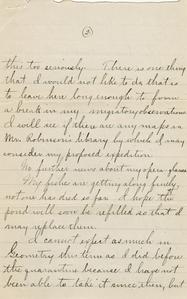 (3)
this too seriously. There is one thing
that I would not like to do that is
to leave here long enough to form
a break in my migratory observations
I will see if there are any maps in
Mr. Robinson's library by which I may
consider my proposed expedition.
No further news about my opera glasses
My fishes are getting along finely,
not one has died so far. I hope the
pond will soon be refilled so that I
may replace them.
I cannot expect as much in
Geometry this term as I did before
the quarantine because I have not
been able to take it since then, but